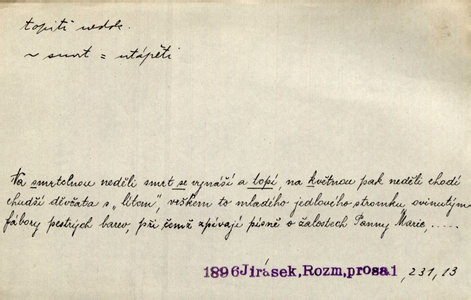 topiti nedok.
~ smrt = utápěti
Na smrtelnou neděli smrt se vynáší a topí, na květnou pak neděli chodí
chudší děvčata s „litem", vrškem to mladého jedlového stromku ovinutým
fábory pestrých barev, při čemž zpívají písně o žalostech Panny Marie, .....
1896 Jirásek, Rozm, prosa1, 231, 13